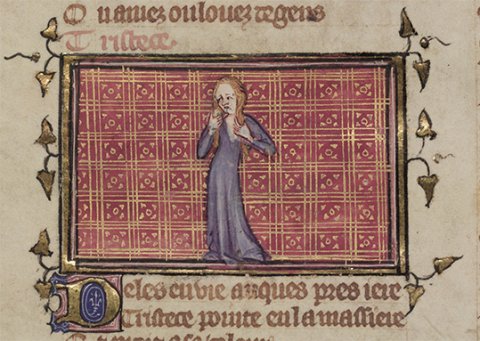 Q u amez ou louez de gens
T ristece.
Deles envie auques pres iere
Tristece pointe en la massiere